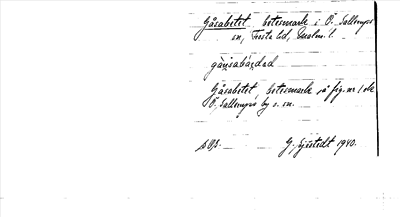 Gåsabetet betesmark i Ö. Sallerups
sn, Frosta hd, Malm. l.
gå̀u̯sabèdəd
Gåsabetet betesmark å fig. nr 1 etc
Ö. Sallerups by o. sn.
G. Sjöstedt 1940.